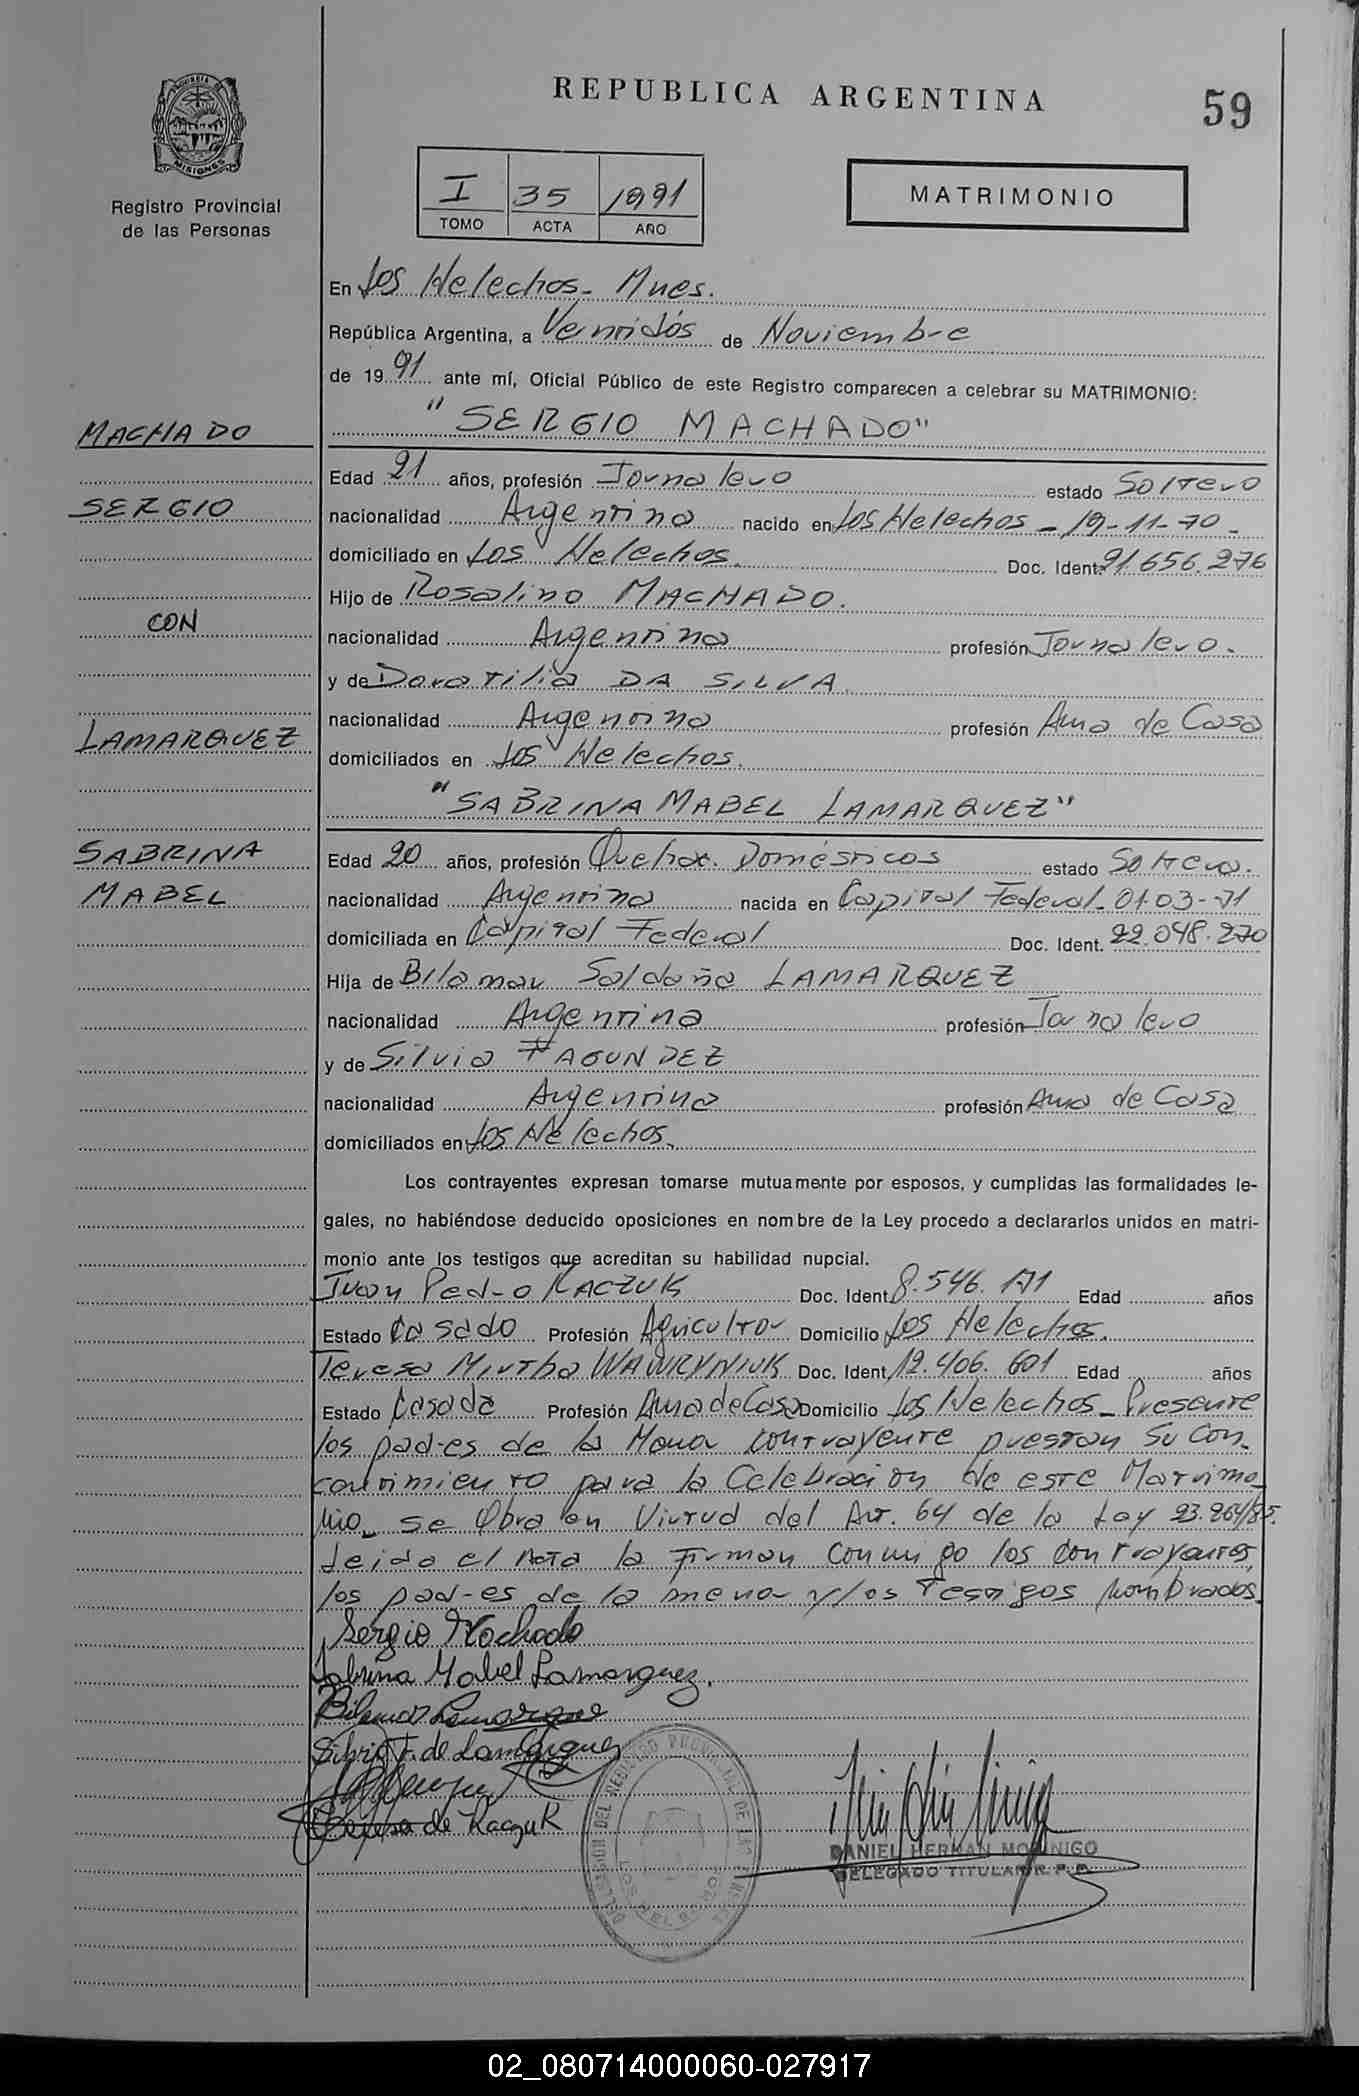 REPUBLICA ARGENTINA
59
PROVINCIA DE MISIONES
Registro Provincial
de las Personas
I 35 1991
TOMO ACTA AÑO
MATRIMONIO
En Los Helechos - Mnes.
República Argentina, a Veintidós de Noviembre
de 1991 ante mí, Oficial Público de este Registro comparecen a celebrar su MATRIMONIO:
MACHADO
"SERGIO MACHADO"
Edad 21 años, profesión Jornalero estado Soltero
SERGIO
nacionalidad Argentina nacido en Los Helechos - 19-11-70-
domiciliado en Los Helechos. Doc. Ident. 21.656.276
Hijo de Rosalino MACHADO.
CON
nacionalidad Argentina profesión Jornalero.
y de Doratilia DA SILVA
LAMARQUEZ
nacionalidad Argentina profesión Ama de Casa
domiciliados en Los Helechos.
"SABRINA MABEL LAMARQUEZ"
SABRINA
Edad 20 años, profesión Quehac. Domésticos estado Soltera.
MABEL
nacionalidad Argentina nacida en Capital Federal - 01-03-71
domiciliada en Capital Federal Doc. Ident. 22.048.270
Hija de Bilamar Saldaña LAMARQUEZ
nacionalidad Argentina profesión Jornalero
y de Silvia FAGUNDEZ
nacionalidad Argentina profesión Ama de Casa
domiciliados en Los Helechos.
Los contrayentes expresan tomarse mutuamente por esposos, y cumplidas las formalidades le-
gales, no habiéndose deducido oposiciones en nombre de la Ley procedo a declararlos unidos en matri-
monio ante los testigos que acreditan su habilidad nupcial.
Juan Pedro KACZUK Doc. Ident. 8.546.171 Edad años
Estado Casado Profesión Agricultor Domicilio Los Helechos.
Teresa Mirtha WAWRYNIUK Doc. Ident. 12.406.601 Edad años
Estado Casada Profesión Ama de Casa Domicilio Los Helechos - Presente
los padres de la Menor contrayente prestan su Con-
centimiento para la Celebración de este Matrimo-
nio - se Obra en Virtud del Art. 64 de la Ley 23.264/85.
Leida el Acta la Firman conmigo los contrayentes,
los padres de la menor y los Testigos Nombrados.
Sergio Machado
Sabrina Mabel Lamarquez.
Bilamar Lamarquez
Silvia F. de Lamarquez
Teresa de Kaczuk
DELEGACION DEL REGISTRO PROVINCIAL DE LAS PERSONAS
LOS HELECHOS
DANIEL HERNAN MORINIGO
DELEGADO TITULAR R. P. P.
02_080714000060-027917